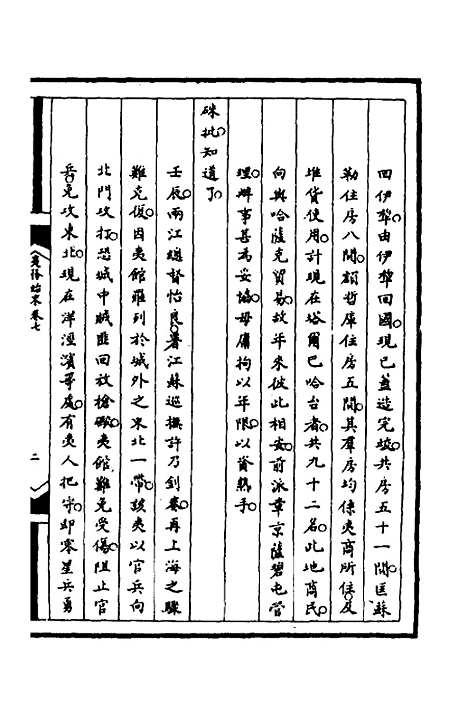 回伊犂由伊犂回國現已蓋造完竣共房五十一間匡蘇
勒住房八間頗哲庫住房五間其羣房均係夷商所住及
堆貨使用計現在塔爾巴哈台者共九十二名此地商民
向與哈薩克貿易故年來彼此相安前派章京薩碧屯嘗
理辦事甚為妥協毋庸拘以年限以資熟手
硃批知道了
壬辰兩江總督怡良署江蘇巡撫許乃釗奏再上海之驟
難克復因夷館羅列於城外之東北一帶該夷以官兵向
北門攻打恐城中賊匪回放槍礮夷館難免受傷阻止官
兵免攻東北現在洋涇濱等處有夷人把守即零星兵勇
夷務始末卷七
二